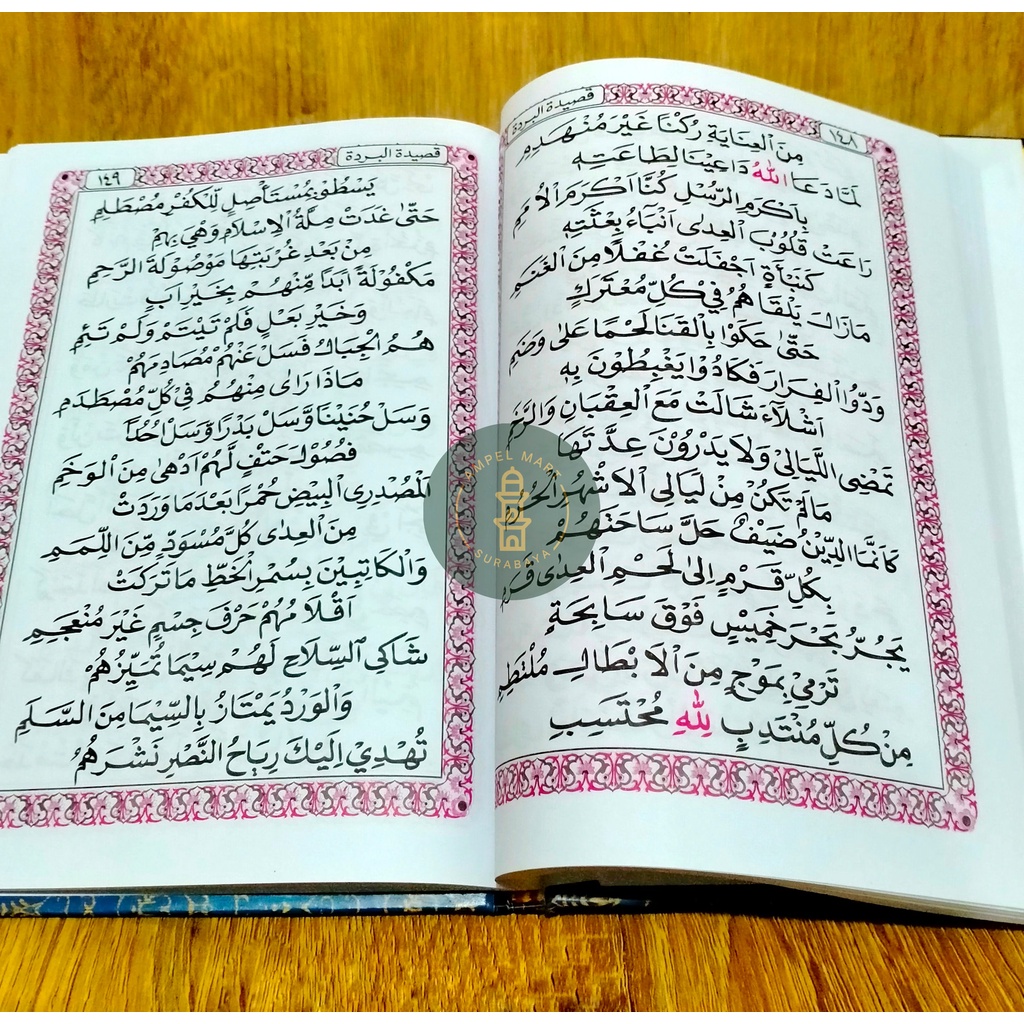 ١٤٨
قصيدة البردة
مِنَ الْعِنَايَةِ رُكْنًا غَيْرَ مُنْهَدِمِ
لَمَّا دَعَا اللهُ دَاعِيْنَا لِطَاعَتِهِ
بِاَكْرَمِ الرُّسْلِ كُنَّا اَكْرَمَ الْاُمَمِ
رَاعَتْ قُلُوْبَ الْعِدٰى اَنْبَآءُ بِعْثَتِهِ
كَنَبْأَةٍ اَجْفَلَتْ غُفْلًا مِنَ الْغَنَمِ
مَازَالَ يَلْقَاهُمُ فِيْ كُلِّ مُعْتَرَكٍ
حَتّٰى حَكَوْا بِالْقَنَا لَحْمًا عَلٰى وَضَمِ
وَدُّوا الْفِرَارَ فَكَادُوْا يَغْبِطُوْنَ بِهِ
اَشْلَآءَ شَالَتْ مَعَ الْعِقْبَانِ وَالرَّخَمِ
تَمْضِى اللَّيَالِيْ وَلَا يَدْرُوْنَ عِدَّتَهَا
مَالَمْ تَكُنْ مِنْ لَيَالِى الْاَشْهُرِ الْحُرُ
كَاَنَّمَا الدِّيْنُ ضَيْفٌ حَلَّ سَاحَتَهُمْ
بِكُلِّ قَرْمٍ اِلٰى لَحْمِ الْعِدٰى قَرِمِ
يَجُرُّ بَحْرَ خَمِيْسٍ فَوْقَ سَابِحَةٍ
تَرْمِيْ بِمَوْجٍ مِنَ الْاَبْطَالِ مُلْتَطِمِ
مِنْ كُلِّ مُنْتَدِبٍ لِلّٰهِ مُحْتَسِبٍ
قصيدة البردة
١٤٩
يَسْطُوْ بِمُسْتَأْصِلٍ لِّلْكُفْرِ مُصْطَلِمِ
حَتّٰى غَدَتْ مِلَّةُ الْاِسْلَامِ وَهْيَ بِهِمْ
مِنْ بَعْدِ غُرْبَتِهَا مَوْصُوْلَةَ الرَّحِمِ
مَكْفُوْلَةً اَبَدًا مِّنْهُمْ بِخَيْرِ اَبٍ
وَخَيْرِ بَعْلٍ فَلَمْ تَيْتَمْ وَلَمْ تَئِمِ
هُمُ الْجِبَالُ فَسَلْ عَنْهُمْ مُصَادِمَهُمْ
مَاذَا رَاٰى مِنْهُمُ فِيْ كُلِّ مُصْطَدَمِ
وَسَلْ حُنَيْنًا وَّسَلْ بَدْرًا وَّسَلْ اُحُدًا
فُصُوْلَ حَتْفٍ لَّهُمْ اَدْهٰى مِنَ الْوَخَمِ
اَلْمُصْدِرِى الْبِيْضَ حُمْرًا بَعْدَ مَا وَرَدَتْ
مِنَ الْعِدٰى كُلَّ مُسْوَدٍّ مِّنَ اللِّمَمِ
وَالْكَاتِبِيْنَ بِسُمْرِ الْخَطِّ مَا تَرَكَتْ
اَقْلَامُهُمْ حَرْفَ جِسْمٍ غَيْرَ مُنْعَجِمِ
شَاكِى السِّلَاحِ لَهُمْ سِيْمَا تُمَيِّزُهُمْ
وَالْوَرْدُ يَمْتَازُ بِالسِّيْمَا مِنَ السَّلَمِ
تُهْدِيْ اِلَيْكَ رِيَاحُ النَّصْرِ نَشْرَهُمُ
AMPEL MART
SURABAYA